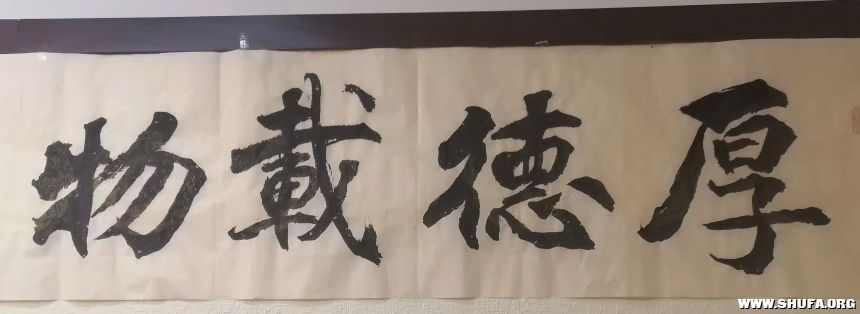 厚德載物
WWW.SHUFA.ORG